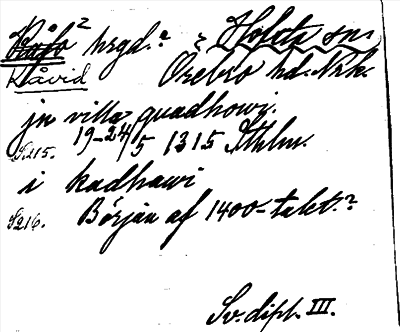 hrgd.? ? Hofsta sn.
Kåvid Örebro hd. Nrk.
jn villa quadhowi.
S. 215. 19-24/5 1315 Sthlm.
i kadhawi
S216. Början af 1400-talet.?
Sv. dipl. III.